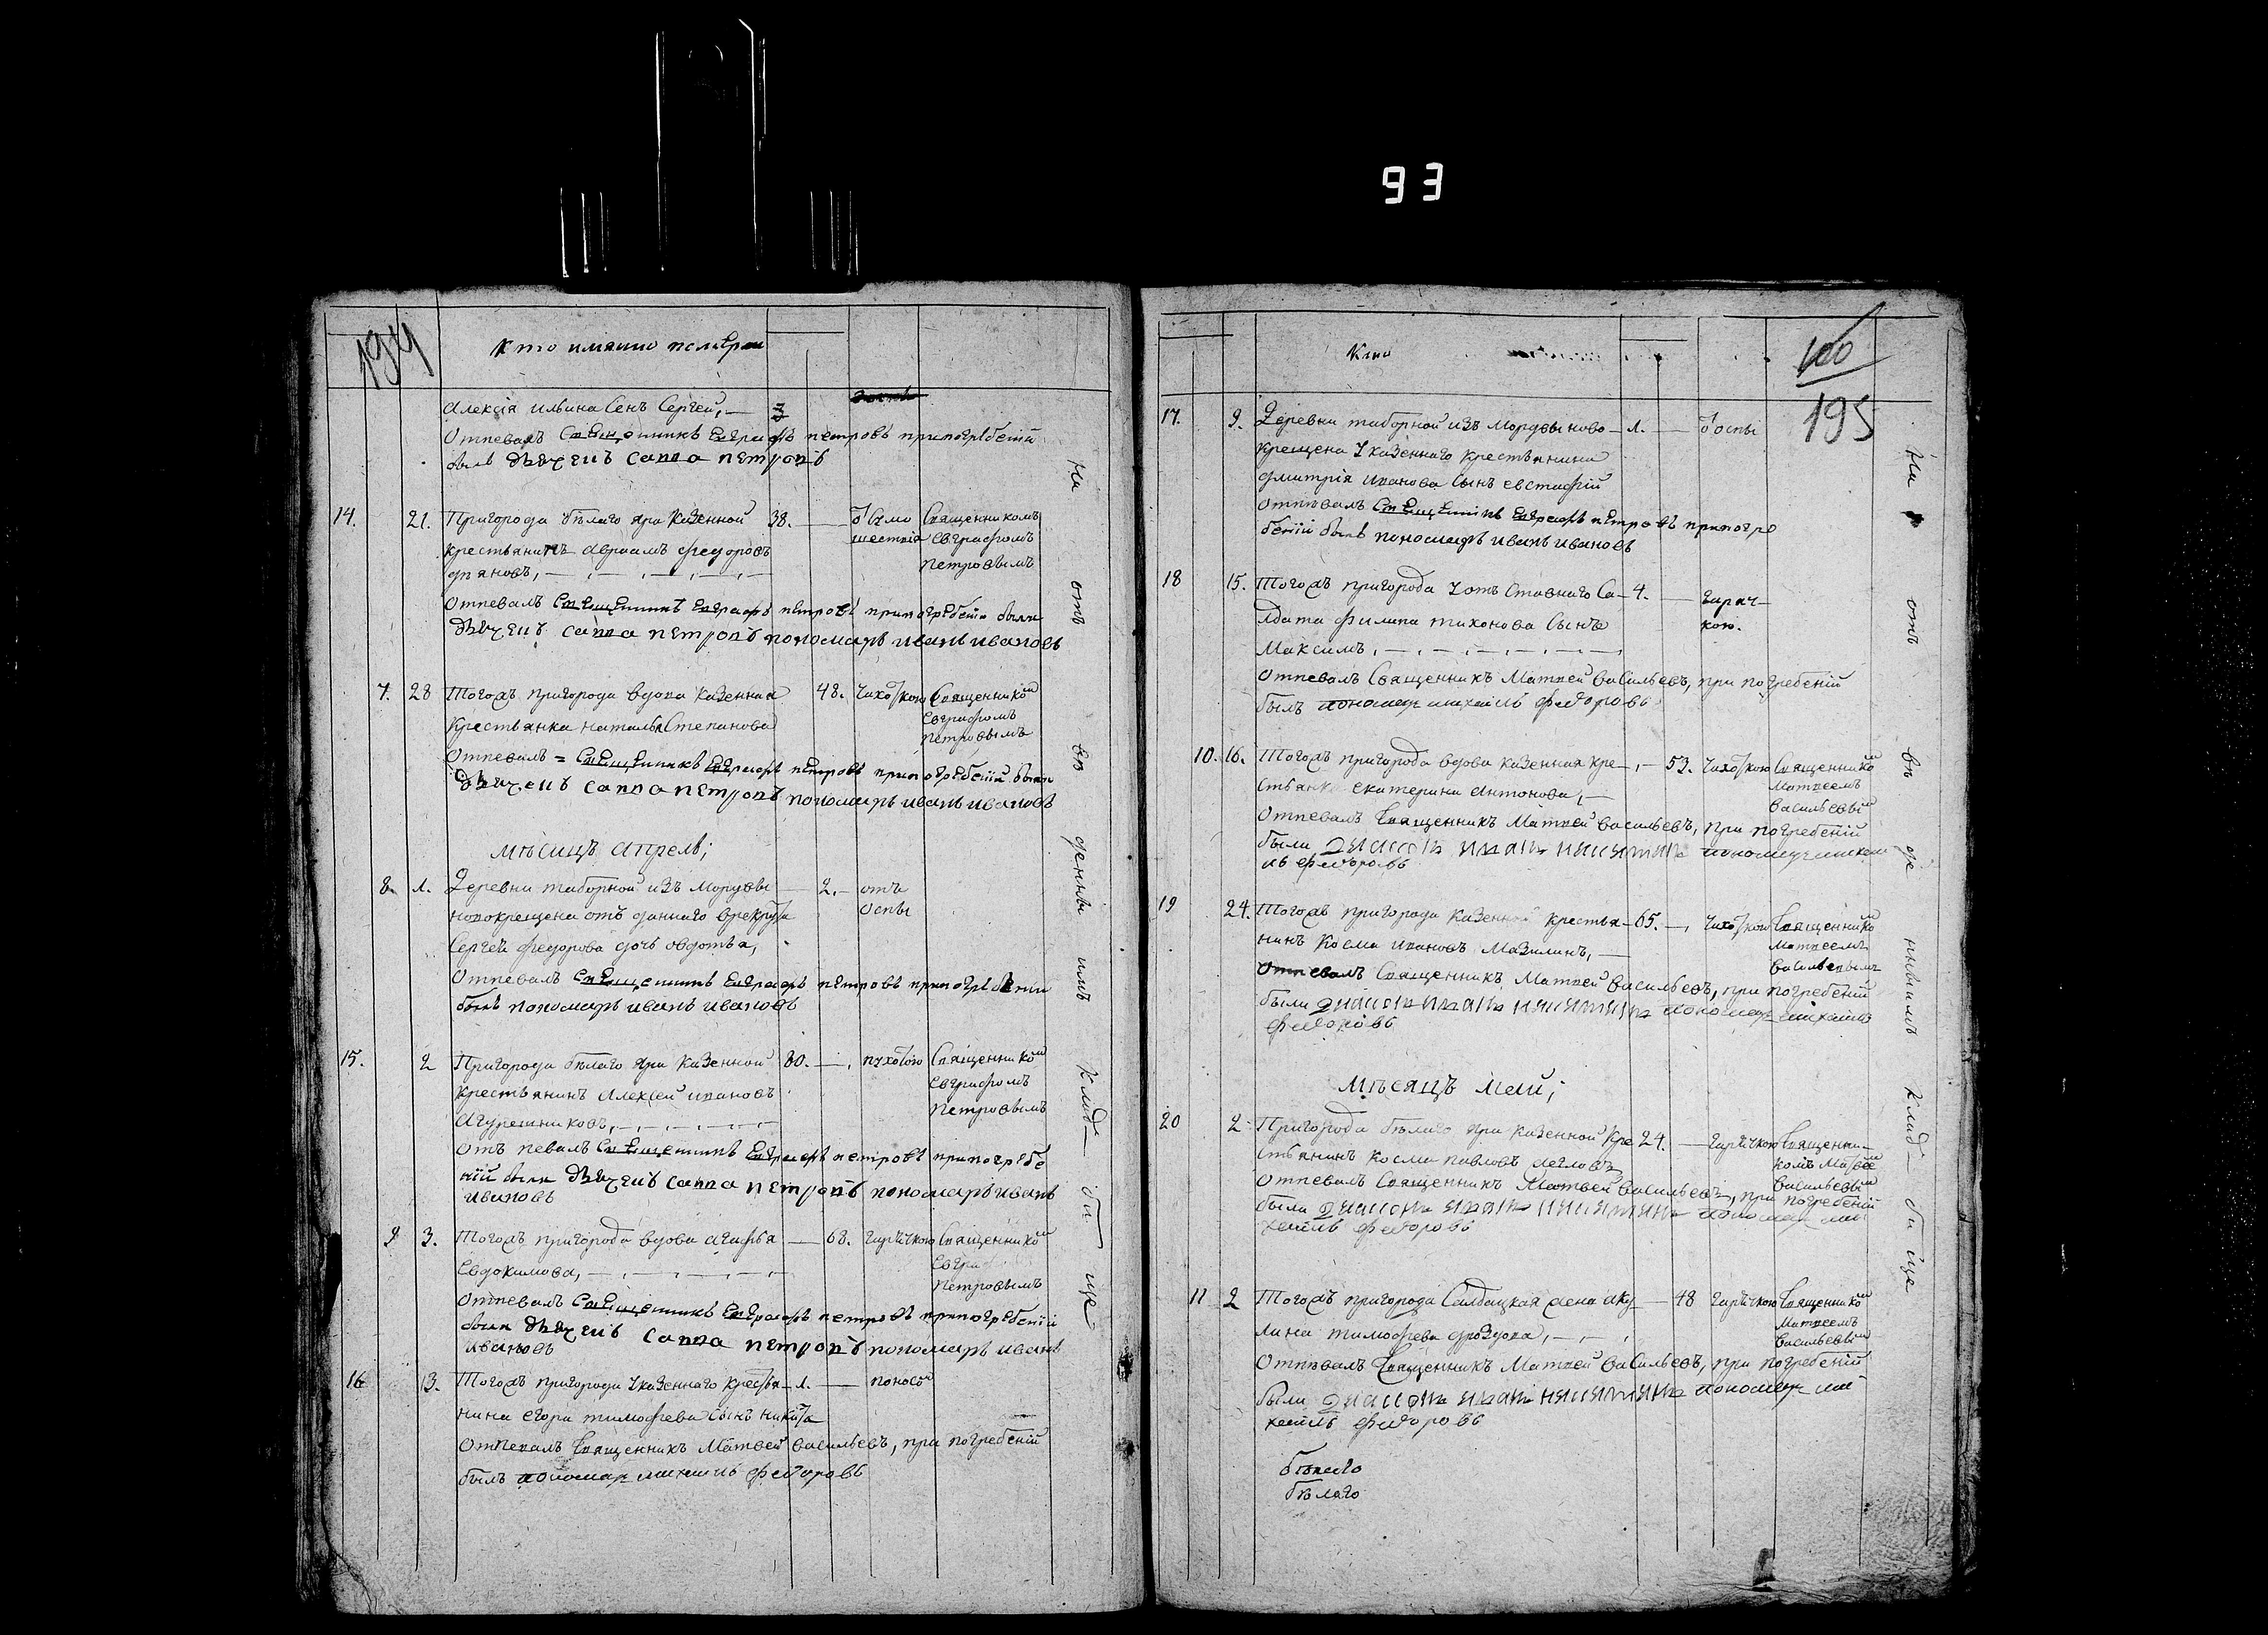 93
194
Кто имянно померли
Алексія Ильина Сенъ Сергей, 3
Отпевалъ Священникъ Евграфъ Петровъ при погребеніи
былъ Дьячекъ Савва Петровъ
14. 21. Пригорода белаго яра казенной 38.
крестьянинъ Авраамъ Федоровъ
Священникомъ
Евграфомъ
Петровымъ
Отпевалъ Священникъ Евграфъ Петровъ при погребеніи были
Дьячекъ Савва Петровъ пономарь Иванъ Ивановъ
7. 28 Тогожъ пригорода вдова казенная 48. Чахоткою Священником
крестьянка Наталья Степанова
Евграфомъ
Петровымъ
Отпевалъ = Священникъ Евграфъ Петровъ при погребеніи были
Дьячекъ Савва Петровъ пономарь Иванъ Ивановъ
Месяцъ Апрель;
8 1. Деревни таборной изъ мордвы 2. отъ
новокрещена отъ даннаго врекруты оспы
Сергея Федорова дочь овдотья,
Отпевалъ Священникъ Евграфъ Петровъ при погребении
былъ пономарь Иванъ Ивановъ
15. 2 Пригорода белаго яра казенной 80. Священником
крестьянинъ Алексей Ивановъ Евграфомъ
Агурешниковъ, Петровымъ
Отъ певалъ Священникъ Евграфъ Петровъ при погребе
ніи были Дьячекъ Савва Петровъ пономарь Иванъ
Ивановъ
9 3. Тогожъ пригорода вдова Агафья 68. горячкою Священником
Евдокимова,
Петровымъ
Отпевалъ Священникъ Евграфъ Петровъ при погребеніи
были Дьячекъ Савва Петровъ пономарь Иванъ
Ивановъ
16 13. Тогожъ пригорода казеннаго крестья 1. поносом
нина егора тимофеева сынъ никита
Отпевалъ Священникъ Матвей Васильевъ, при погребеніи
былъ пономарь михаилъ федоровъ
На отъ веденномъ кладбище
100
195
Кто
17. 9. Деревни таборной изъ мордвы ново 1. оспы
крещена казеннаго крестьянина
дмитрія иванова сынъ евстафій
отпевалъ Священникъ Евграфъ Петровъ при погре
беніи былъ пономарь Иванъ Ивановъ
18 15. Тогожъ пригорода отъ ставнаго Са 4. гаряч
лдата филипа тихонова сынъ кою.
Максимъ,
Отпевалъ Священникъ Матвей Васильевъ, при погребеніи
былъ пономарь михаилъ федоровъ
10. 16. Тогожъ пригорода вдова казенная кре 53. Чахоткою Священником
стьянка екатерина Антонова, Матвеемъ
Васильевым
Отпевалъ Священникъ Матвей Васильевъ, при погребеніи
были
пономарь михаи
лъ федоровъ
19 24. Тогожъ пригорода казенной крестья 65. Чахоткою Священником
нинъ Косма ивановъ Мазилинъ, Матвеемъ
Васильевымъ
Отпевалъ Священникъ Матвей Васильевъ, при погребеніи
были
пономарь михаилъ
федоровъ
Месяцъ Маій;
20 2 Пригорода белаго яра казенной кре 24. гарячкою Священни
стьянинъ Косма павловъ комъ Матвее
Васильевым
Отпевалъ Священникъ Матвей Васильевъ, при погребеніи
были
пономарь ми
хаилъ федоровъ
11 2 Тогожъ пригорода Салдацкая жена аку 48 гарячкою Священником
лина тимофеева дроздова, Матвеемъ
Васильевым
Отпевалъ Священникъ Матвей Васильевъ, при погребеніи
были
пономарь ми
хаилъ федоровъ
белаго
белаго
На отъ веденномъ кладбище